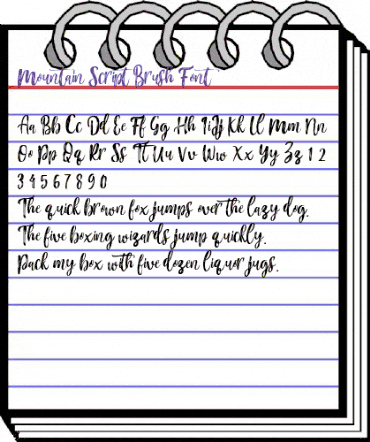 Mountain Script Brush Font
Aa Bb Cc Dd Ee Ff Gg Hh Ii Jj Kk Ll Mm Nn
Oo Pp Qq Rr Ss Tt Uu Vv Ww Xx Yy Zz 1 2
3 4 5 6 7 8 9 0
The quick brown fox jumps over the lazy dog.
The five boxing wizards jump quickly.
Pack my box with five dozen liquor jugs.